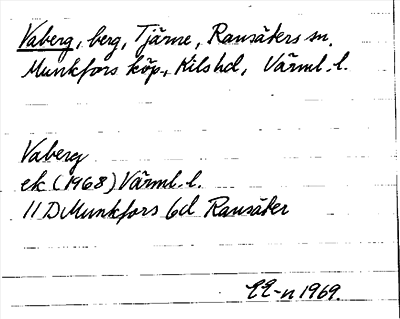 Vaberg, berg, Tjärne, Ransäters sn,
Munkfors köp., Kils hd, Värml. l.
Vaberg
ek (1968) Värml. l.
11 D Munkfors 6d Ransäter
EE-n 1969.